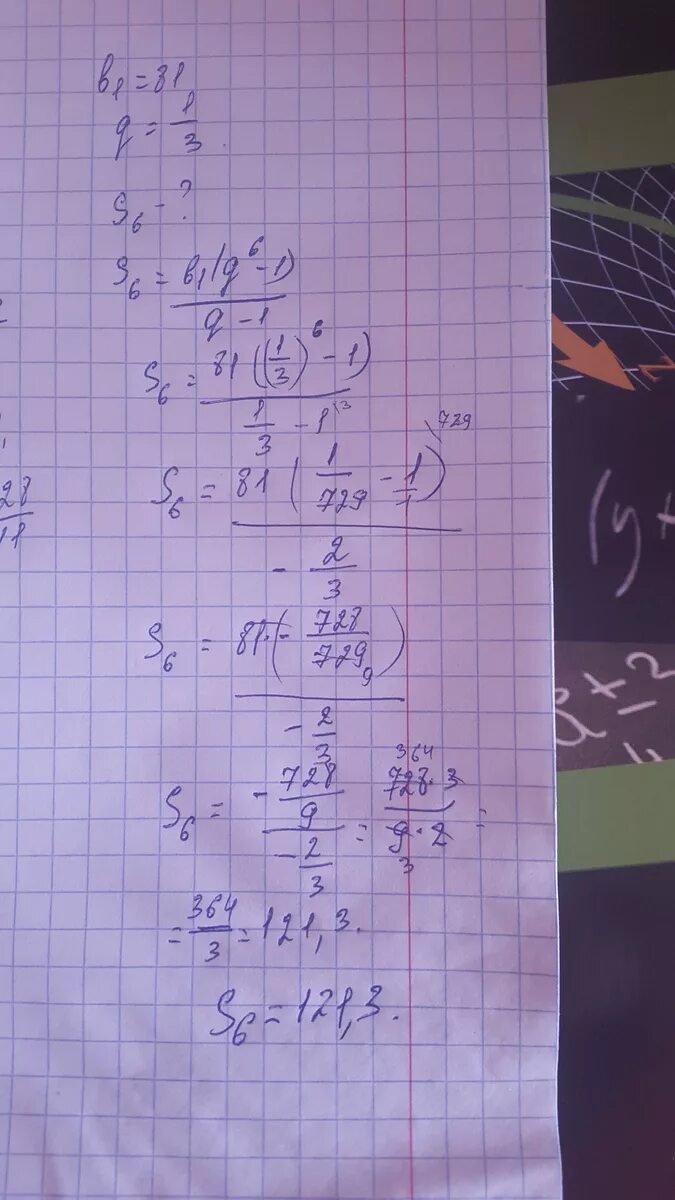 b₁ = 81
q = 1/3.
S₆ - ?
S₆ = b₁(q⁶ - 1) / (q - 1)
S₆ = 81((1/3)⁶ - 1) / (1/3 - 1\3)
S₆ = 81(1/729 - 1/1 \729) / (- 2/3)
S₆ = 81·(- 728/729 9) / (- 2/3)
S₆ = (- 728/9) / (- 2/3) = 364 728·3 / 9·2 3 =
= 364/3 = 121,3.
S₆ = 121,3.
28
11
(y +
+
12
4